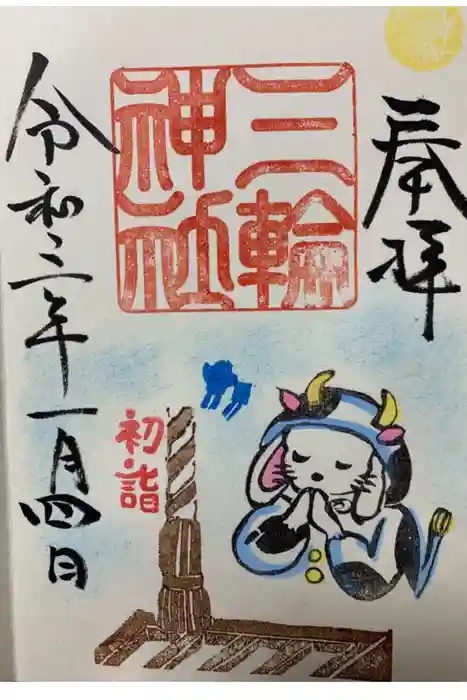 奉拝
三輪
神社
初詣
令和三年一月四日